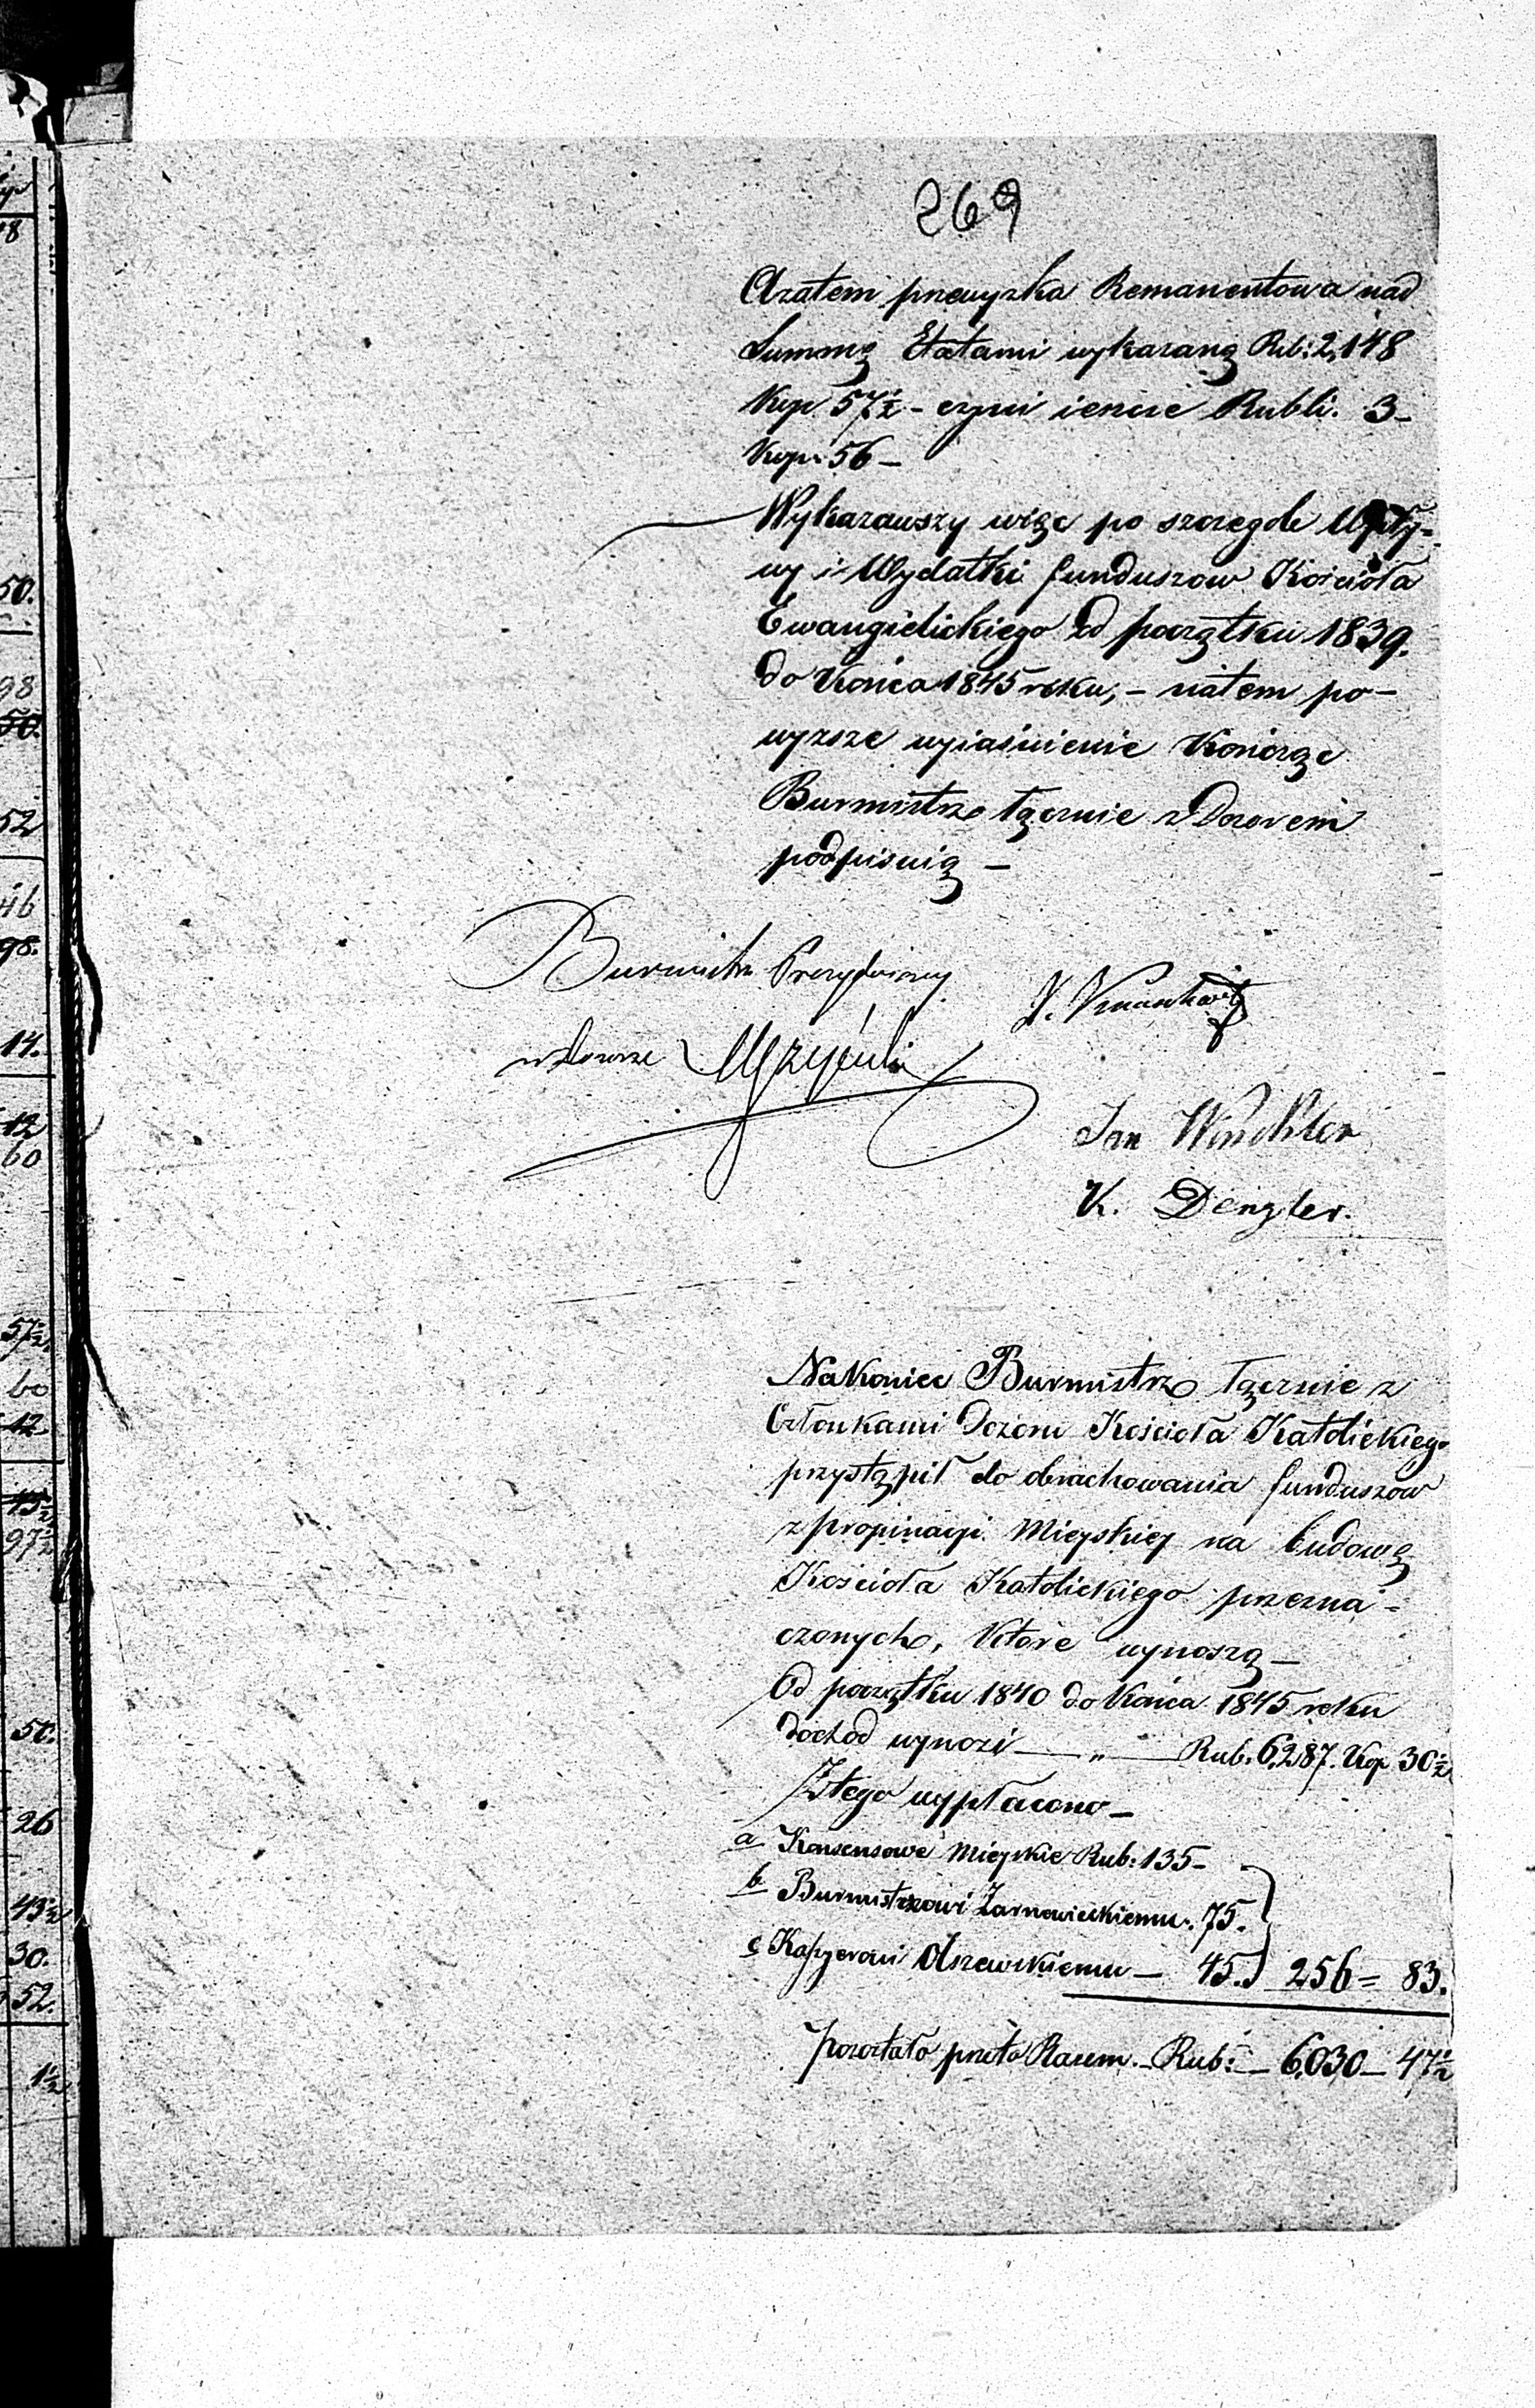 269
Azatem przewyżka Remanentowa nad
Summę Etatami wykazaną Rub: 2,148
Kop 57½ - czyni ieszcze Rubli. 3 -
Kop. 56 —
Wykazawszy więc po szczególe Wpły=
wy i Wydatki funduszow Kościoła
Ewangielickiego od początku 1839.
do Końca 1845 roku, — niniem po-
wyzsze wyiaśnienie Kończąc
Burmistrz łącznie z Dozorem
podpisuią —
Burmistrz Prezyduiący
w Dozorze
Jan Winckler
K. Denzler.
Nakoniec Burmistrz łącznie z
Członkami Dozoru Kościoła Katolickiego
przystąpił do obrachowania funduszow
z propinacyi Mieyskiey na budowę
Kościoła Katolickiego przezna=
czonych, Które wynoszą —
Od początku 1840 do Końca 1845 roku
dochod wynosi — „ — Rub. 6,287. Kop 30½
Ztego wypłacono —
a Konsensowe Mieyskie Rub: 135 -
b Burmistrzowi Żarnowieckiemu. 75.
c Kassyerowi Olszewskiemu — 45. 256 = 83.
pozostało przeto Razem. — Rub: — 6,030 — 47½
50.
98
50.
52
46
98.
14.
12
60
57½
60
12
43½
97½
50.
26
43½
30.
52.
1½